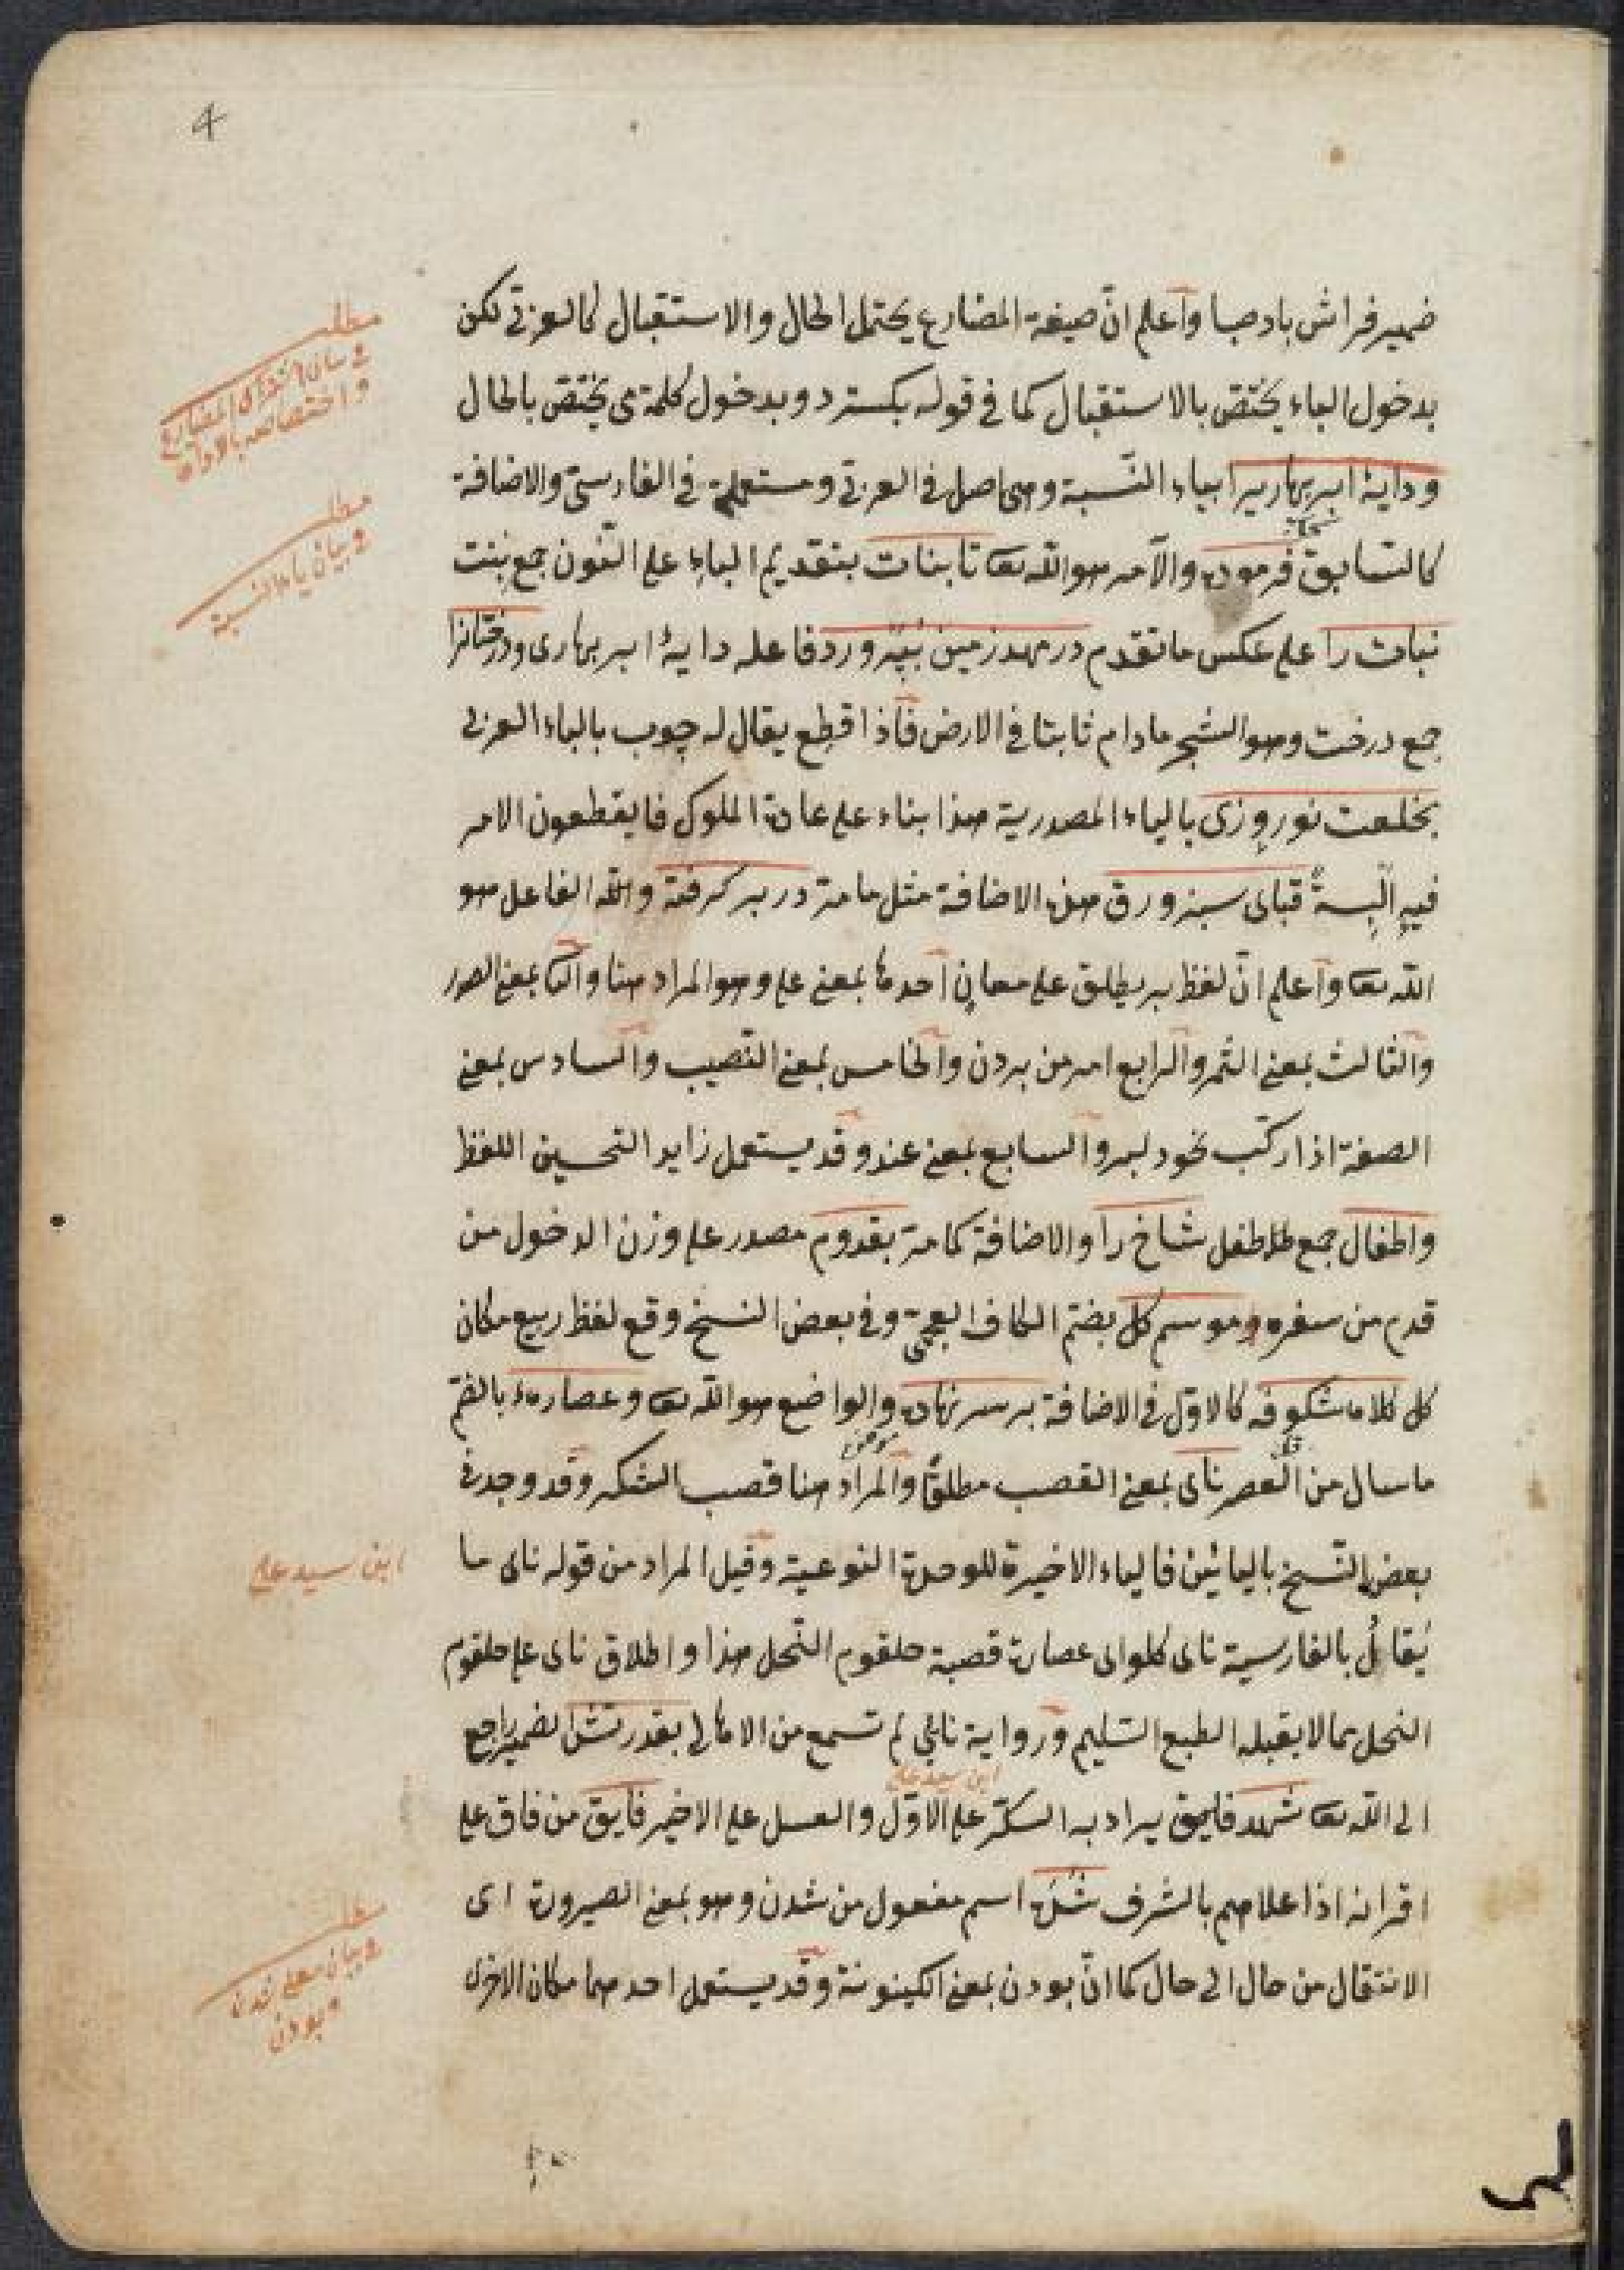 4
ضمير فراش باد صبا واعلم انّ صيغة المضارع يحتمل الحال والاستقبال كما لعربيّ لكن
بدخول الباء يختصّ بالاستقبال كما في قوله بكسترد وبدخول كلمة مى يختصّ بالحال
وداية ابر بهاريرا بياء النّسبة وهى اصل في العربيّ ومستعملة في الفارسيّ والاضافة
كالسّابق فرموده والآمر هو الله تعا تا بنات بتقديم الباء على النّون جمع بنت
نبات را على عكس ما تقدم در مهد زمين بپرورد فاعله داية ابر بهارى ودرختانرا
جمع درخت وهو الشجر مادام ثابتا في الارض فاذا قطع يقال له چوب بالباء العربى
بخلعت نوروزى بالياء المصدرية هذا بناء على عادة الملوك فا يقطعون الامر
فيه البسةً قباى سبز ورق هذه الاضافة مثل ما مرّ در بر كرفته والله الفاعل هو
الله تعا واعلم انّ لفظ بر يطلق على معان احدها بمعنى على وهو المراد هنا والثا بمعنى الصدر
والثالث بمعنى الثمر والرابع امر من بردن والخامس بمعنى النصيب والسادس بمعنى
الصفة اذا ركّب نحو دلبر والسابع بمعنى عند وقد يستعمل زايد التحسين اللفظ
واطفال جمع طفل شاخ را والاضافة كما مرّ بقدوم مصدر على وزن الدخول من
قدم من سفره وموسم كل بضمّ الكاف العجميّ وفي بعض النسخ وقع لفظ ربيع مكان
كل كلاه شكوفه كالاوّل في الاضافة بر سر نهاده والواضع هو الله تعا وعصارهء بالضمّ
ما سال من العصر ناى بمعنى القصب مطلقًا والمراد هنا قصب السّكر وقد وجد في
بعض النّسخ باليائين فالياء الاخيرة للوحدة النوعية وقيل المراد من قوله ناى ما
يُقالُ بالفارسية ناى كلو اى عصارة قصبة حلقوم النّحل هذا واطلاق ناى على حلقوم
النحل مما لا يقبله الطبع السّليم ورواية نايى لم تسمع من الاهالى بقدرتش الضمير راجع
الى الله تعا شهد فايق يراد به السكّر على الاوّل والعسل على الاخير فايق من فاق على
ابن سيد على
اقرانه اذا علاهم بالشرف شده اسم مفعول من شدن وهو بمعنى الصيرورة اى
الانتقال من حال الى حال كما انّ بودن بمعنى الكينونة وقد يستعمل احدهما مكان الاخرى
مطلب
المضارع
واختصاصه بالاداة
مطلب
في بيان ياء النسبة
ابن سيد على
مطلب
في بيان معنى شدن
وبودن